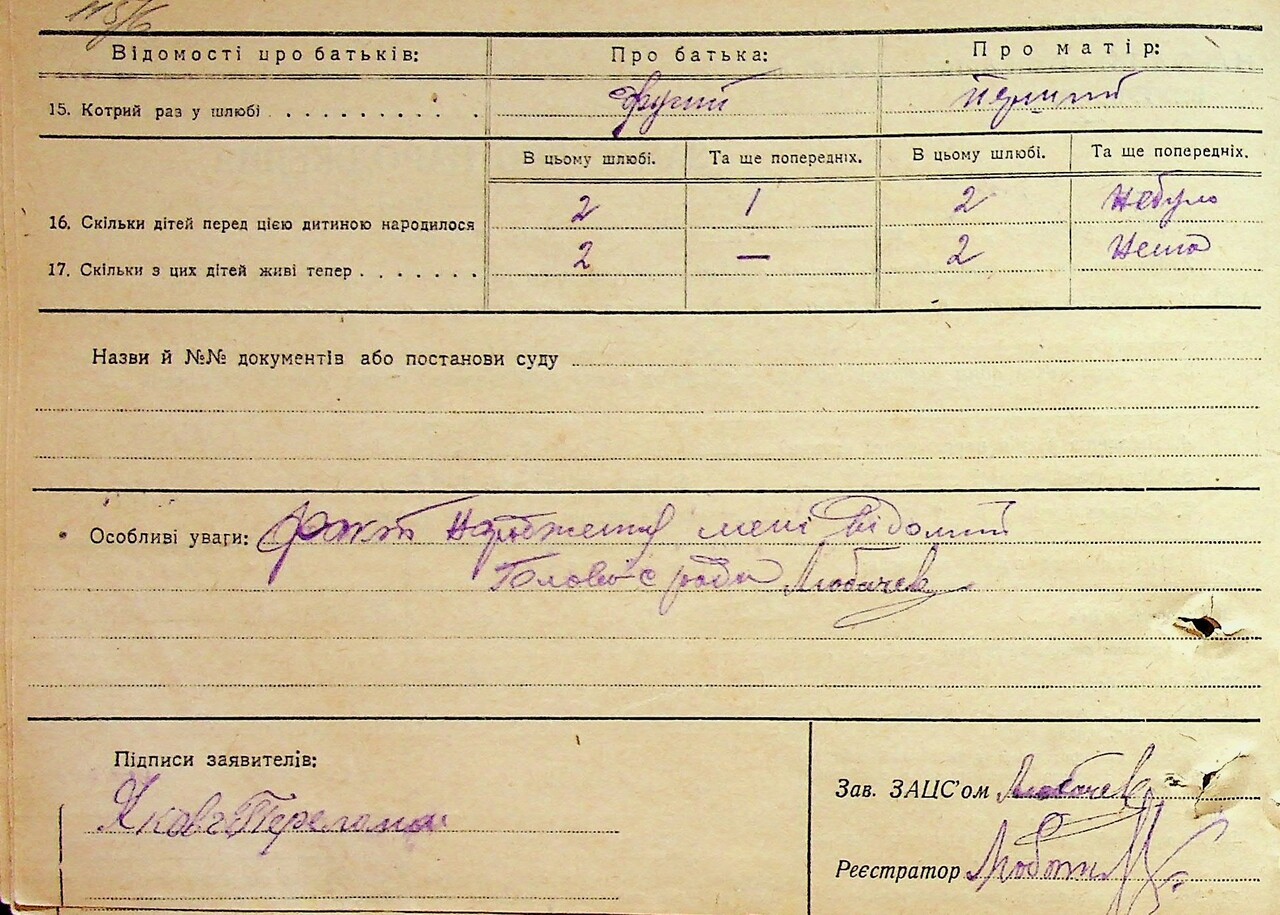 Відомості про батьків: Про батька: Про матір:
15. Котрий раз у шлюбі . . . . . . . . . . другий перший
В цьому шлюбі. Та ще попередніх. В цьому шлюбі. Та ще попередніх.
16. Скільки дітей перед цією дитиною народилося 2 1 2 небуло
17. Скільки з цих дітей живі тепер . . . . . . . 2 — 2 нема
Назви й №№ документів або постанови суду
Особливі уваги: факт народження мені відомий
Голова с ради Любачев
Підписи заявителів:
Яков
Зав. ЗАЦС'ом Любачев
Реєстратор